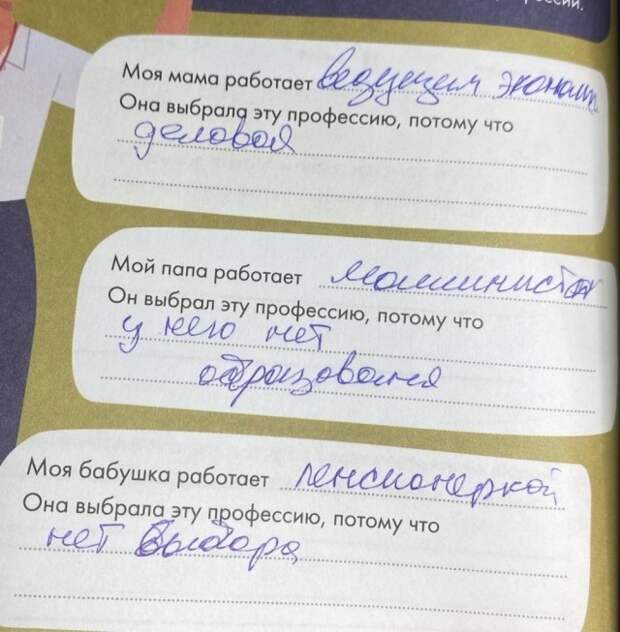 ссии.
Моя мама работает ведущим эконом
Она выбрала эту профессию, потому что
деловая
Мой папа работает машинистом
Он выбрал эту профессию, потому что
у него нет
образования
Моя бабушка работает пенсионеркой
Она выбрала эту профессию, потому что
нет выбора